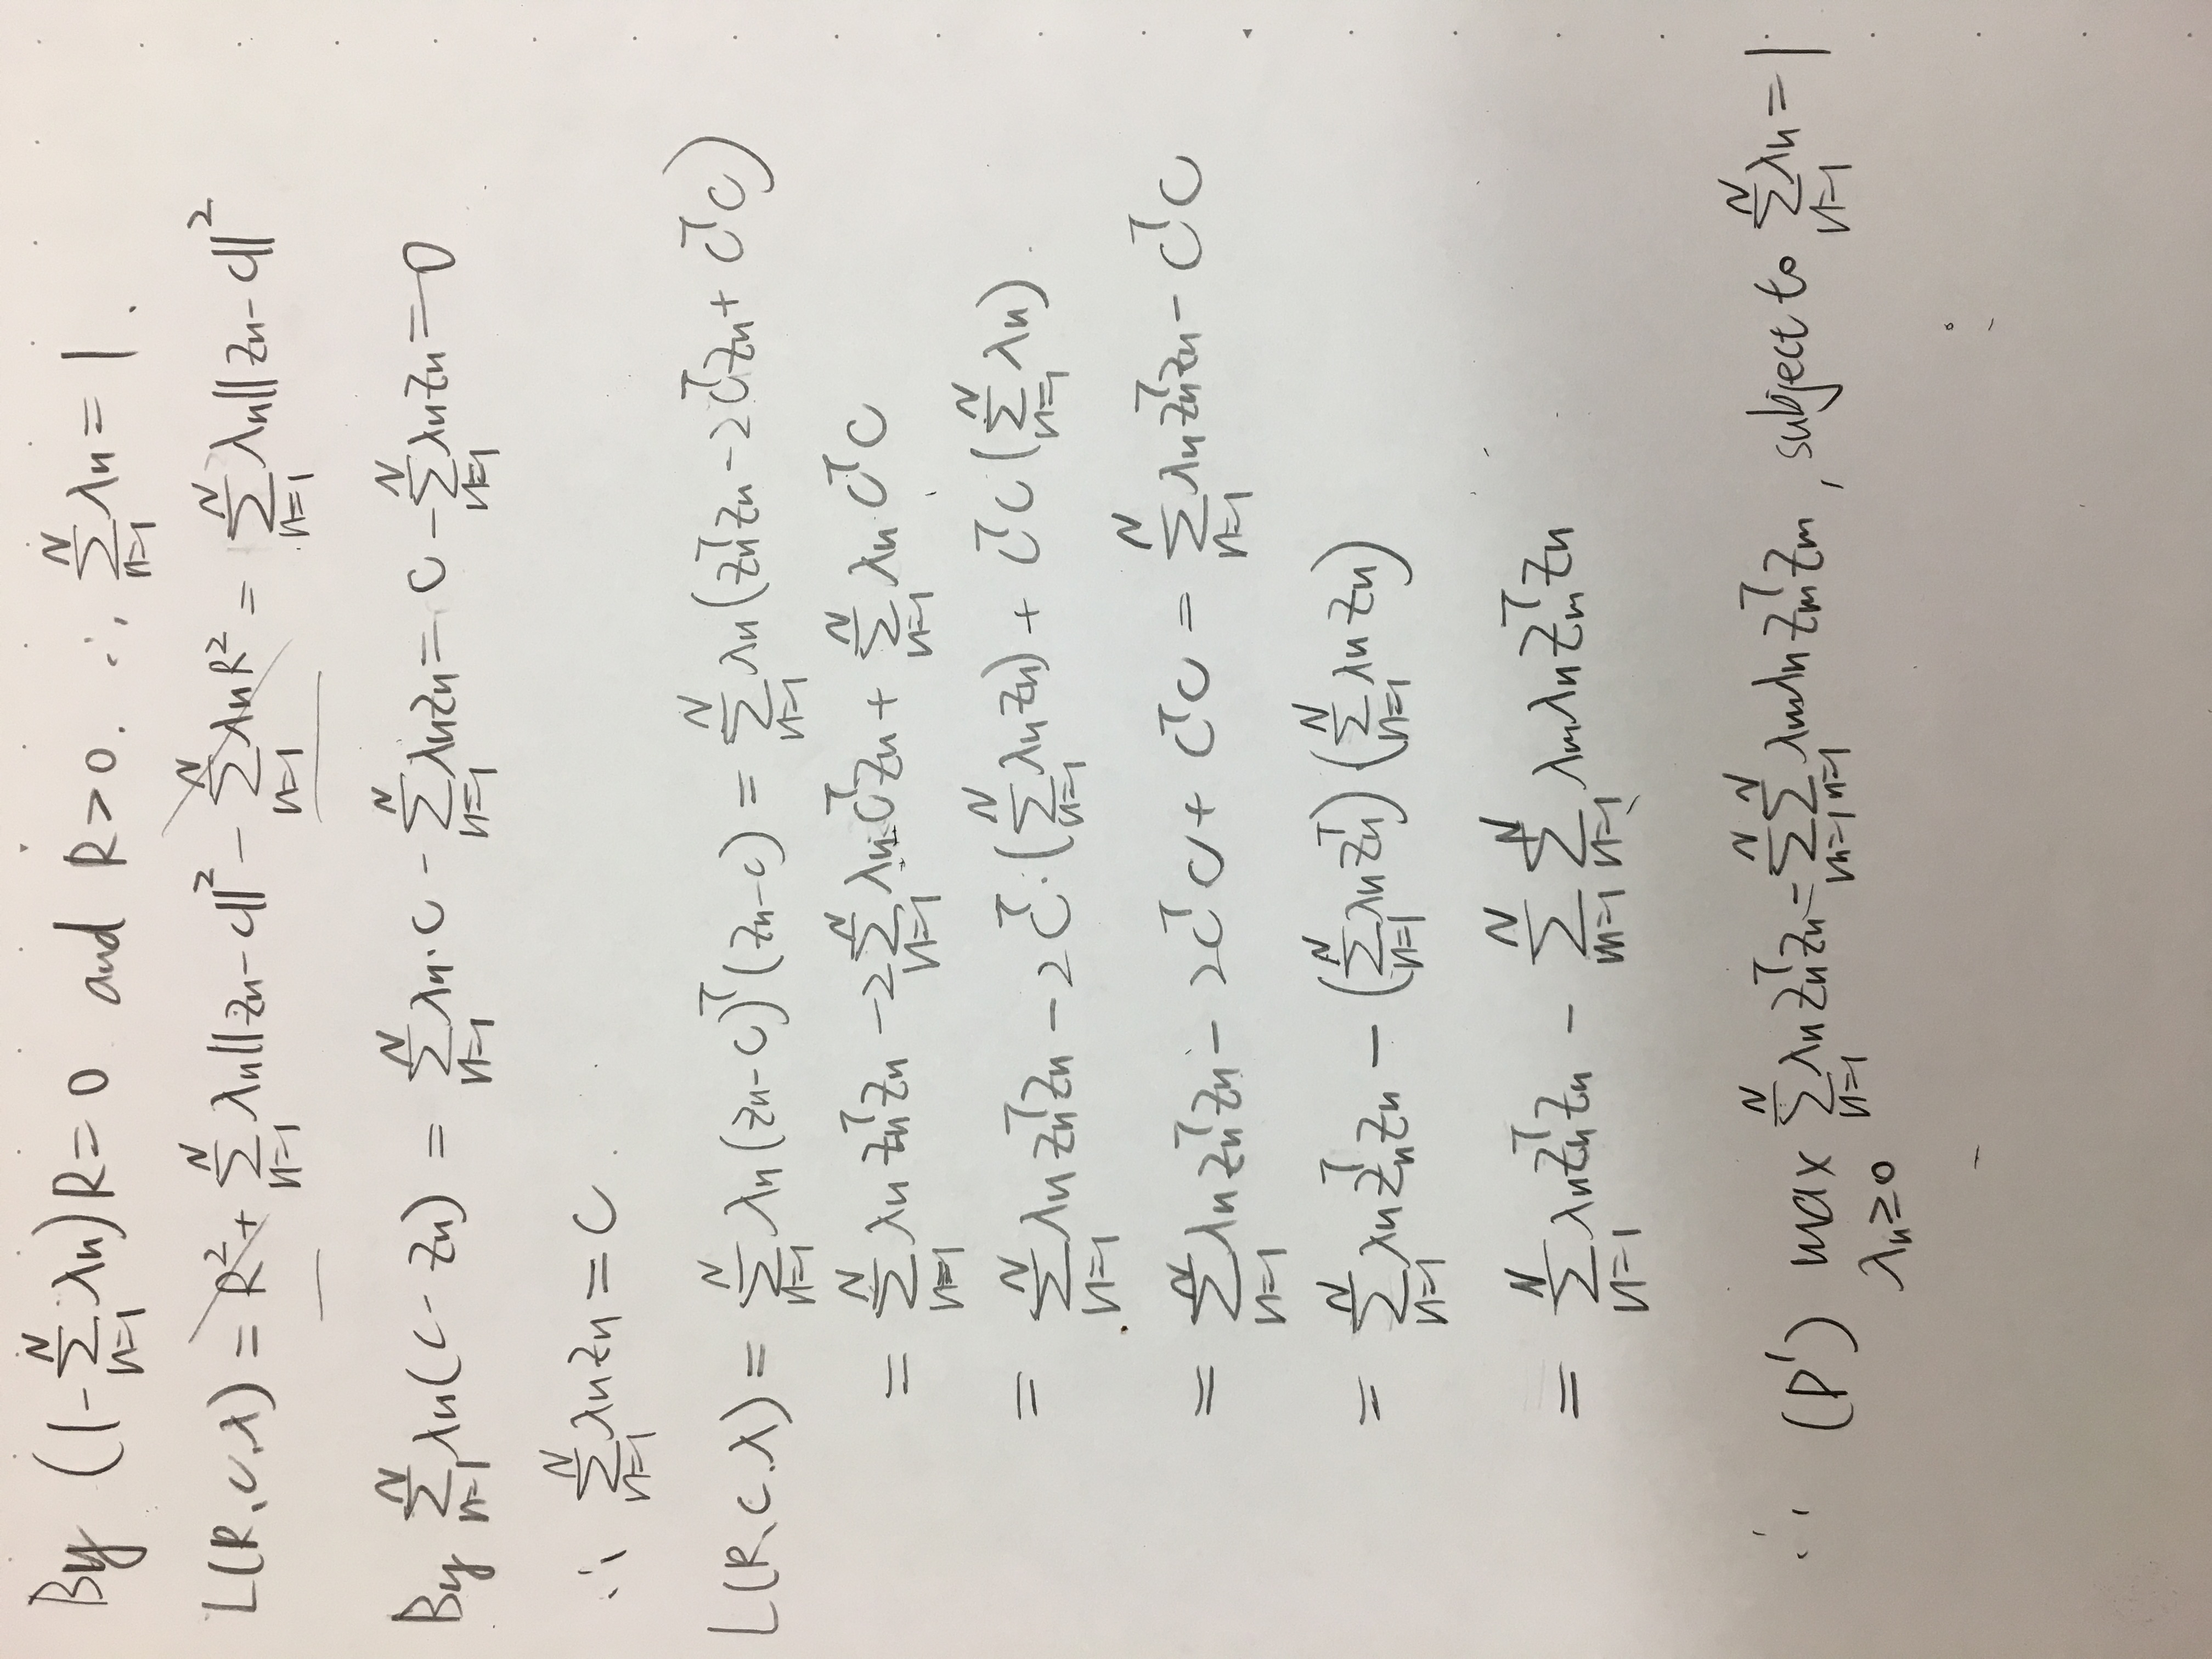 By (1 - \sum_{n=1}^{N} λ_n) R = 0 and R > 0. ∴ \sum_{n=1}^{N} λ_n = 1.
L(R, c, λ) = R^2 + \sum_{n=1}^{N} λ_n ||z_n - c||^2 - \sum_{n=1}^{N} λ_n R^2 = \sum_{n=1}^{N} λ_n ||z_n - c||^2
By \sum_{n=1}^{N} λ_n (c - z_n) = \sum_{n=1}^{N} λ_n · c - \sum_{n=1}^{N} λ_n z_n = c - \sum_{n=1}^{N} λ_n z_n = 0
∴ \sum_{n=1}^{N} λ_n z_n = c.
L(R, c, λ) = \sum_{n=1}^{N} λ_n (z_n - c)^T (z_n - c) = \sum_{n=1}^{N} λ_n (z_n^T z_n - 2 c^T z_n + c^T c)
= \sum_{n=1}^{N} λ_n z_n^T z_n - 2 \sum_{n=1}^{N} λ_n c^T z_n + \sum_{n=1}^{N} λ_n c^T c
= \sum_{n=1}^{N} λ_n z_n^T z_n - 2 c^T · (\sum_{n=1}^{N} λ_n z_n) + c^T c (\sum_{n=1}^{N} λ_n).
= \sum_{n=1}^{N} λ_n z_n^T z_n - 2 c^T c + c^T c = \sum_{n=1}^{N} λ_n z_n^T z_n - c^T c
= \sum_{n=1}^{N} λ_n z_n^T z_n - (\sum_{n=1}^{N} λ_n z_n^T) (\sum_{n=1}^{N} λ_n z_n)
= \sum_{n=1}^{N} λ_n z_n^T z_n - \sum_{m=1}^{N} \sum_{n=1}^{N} λ_m λ_n z_m^T z_n
∴ (D') max_{λ_n ≥ 0} \sum_{n=1}^{N} λ_n z_n^T z_n - \sum_{m=1}^{N} \sum_{n=1}^{N} λ_m λ_n z_m^T z_m, subject to \sum_{n=1}^{N} λ_n = 1